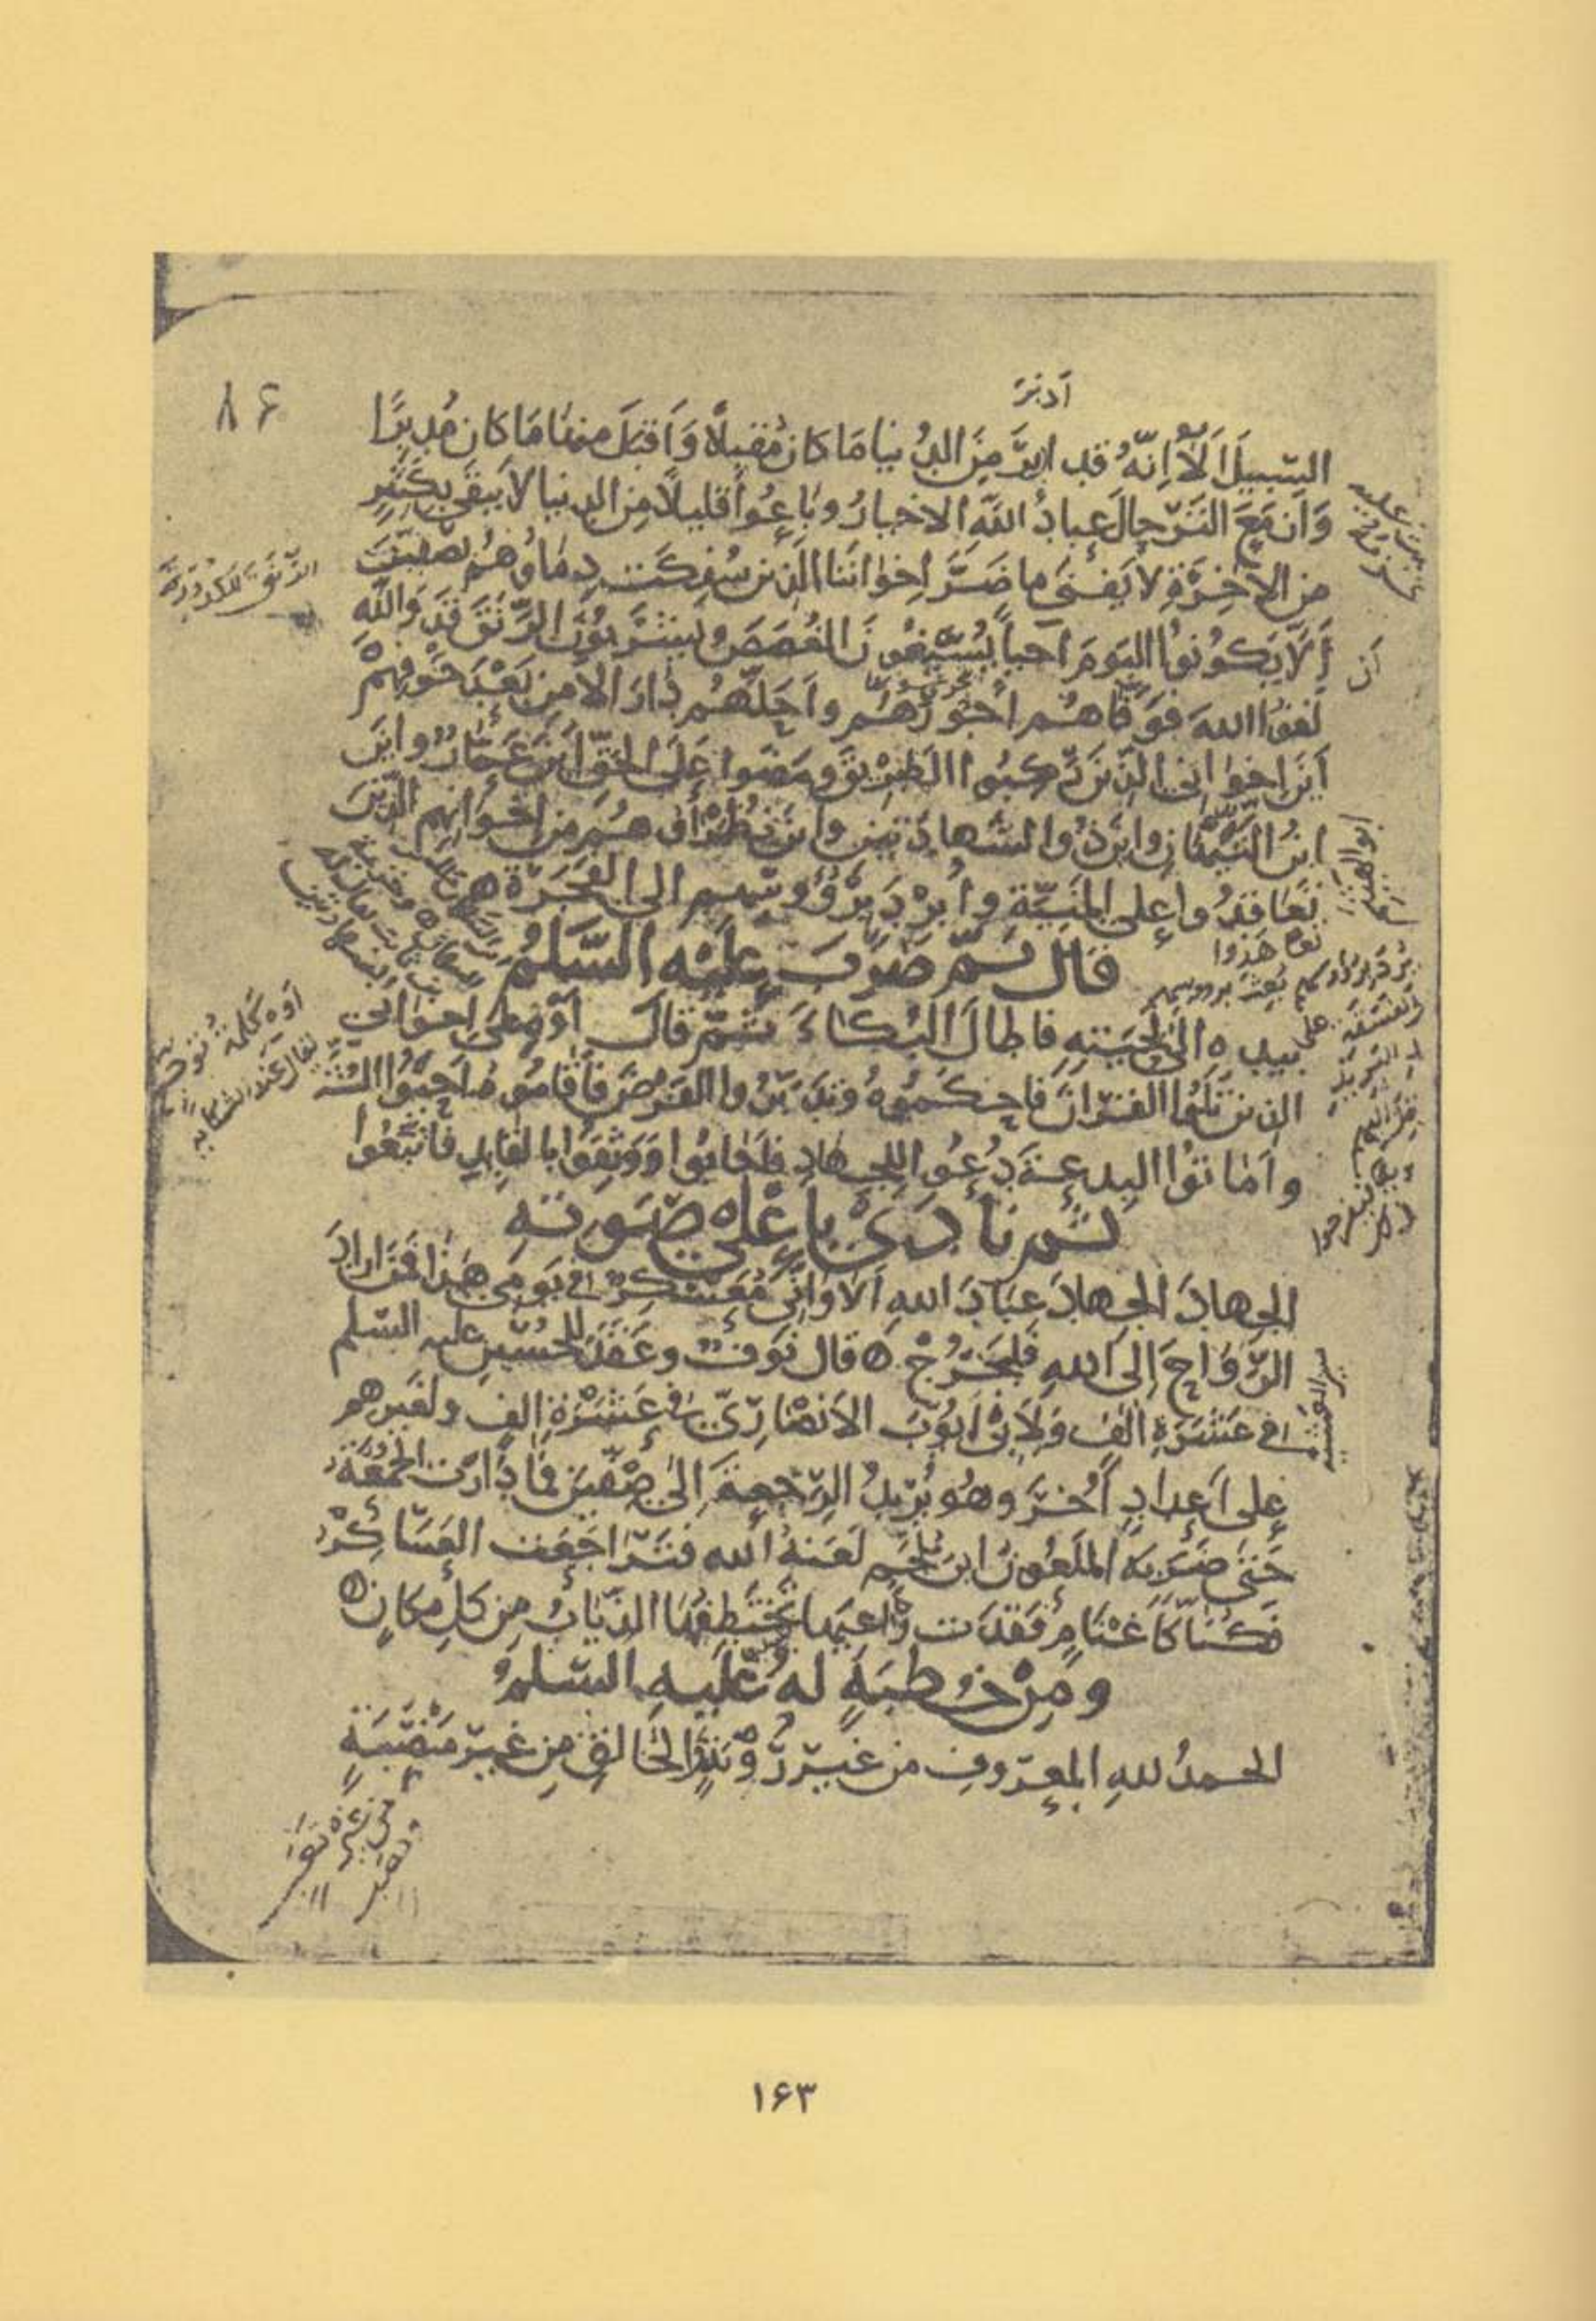 ۸۶
أدبر
السّبيلَ اَلَا اِنّهُ قد ادبرَ مِنَ الدُّنيا مَا كانَ مُقبِلاً وَاَقبَلَ منها مَا كان مُدبِرًا
وَازمَعَ التَرّحالَ عِبادُ اللّه الاخيارُ وباعُوا قليلاً مِن الدنيا لا يبقَى بكثيرٍ
من الآخِرَةِ لا يَفنَى ما ضَرَّ اِخوَانَنا الذين سُفِكَت دِمَاؤُهُم بصفّينَ
أَلَّا يَكُونُوا اليَومَ احياً يُسيغُونَ الغُصَصَ ويَشرَبُونَ الرَّنقَ قَد وَاللّهِ
أن
لَقُوا اللهَ فَوَفَّاهُم اُجُورَهُم واَحَلَّهُم دَارَ الامنِ بَعْدَ خَوْفِهِمْ
اَينَ اخوانِى الذّينَ رَكِبُوا الطرِيقَ ومَضَوا عَلَى الحَقِّ اَينَ عَمّارٌ واينَ
ابنُ التَيِّهَانِ واينَ ذُو الشهادَتَينِ واينَ نُظَرَاؤُهُم مِن اِخوَانِهِم الذّينَ
تَعَاقدُوا على المَنِيّةِ واُبرِدَ بِرُؤُوسِهِم الى الفَجَرَةِ
قال ثمّ ضرَبَ عليه السّلمُ
بيده الى لِحيَتِهِ فاطالَ البُكاءَ ثُمّ قالَ أَوْهِ على اخوانِي
الذين تَلَوُا القُرانَ فاحكَمُوهُ وتَدَبَّرُوا الفَرضَ فأقامُوهُ اَحيَوُا السُّنَّةَ
واَمَاتُوا البِدعةَ دُعُوا للجِهادِ فاَجَابُوا وَوَثِقُوا بالقايدِ فاتّبَعُوا
ثم نادى باعلى صوته
الجِهادَ الجِهادَ عِبَادَ اللهِ اَلا وَانّى مُعَسكِرٌ فى يَومِى هذا فمَن ارادَ
الرّوَاحَ اِلىَ اللهِ فليَخرُجْ قال نَوفٌ وعَقَدَ للحُسَينِ عليه السّلم
فى عَشَرَةِ الفٍ وَلِاَبى اَيّوبَ الاَنصارِىّ فى عَشَرَةِ الفٍ ولغَيرِهم
على اَعدادٍ اُخَرَ وهُو يُرِيدُ الرّجعةَ اِلىٰ صِفّينَ فما دَارَت الجُمُعَةُ
حَتى ضَرَبهُ الملعُونُ ابن مُلجَمٍ لَعَنهُ الله فتَرَاجَعَت العَسَاكِرُ
فكُنّا كَاَغنَامٍ فَقَدَت رَاعِيَها تَختَطِفُهَا الذّيابُ مِن كلِّ مكانٍ
ومِنْ خُطبَةٍ لهُ عَليهِ السّلمُ
الحمدُ للهِ المعرُوفِ من غيرِ رُؤيَةٍ الخالقِ مِن غيرِ مَنصَبَةٍ
ابو الهيثم
۱۶۳